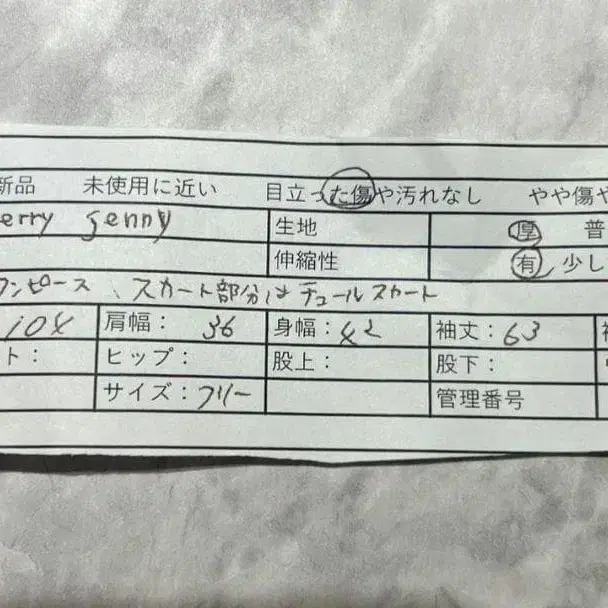 新品 未使用に近い 目立った傷や汚れなし やや傷や
erry Jenny 生地 厚 普
伸縮性 有 少し
ワンピース、スカート部分はチュールスカート
104 肩幅：36 身幅：42 袖丈：63
ト： ヒップ： 股上： 股下：
サイズ：フリー 管理番号